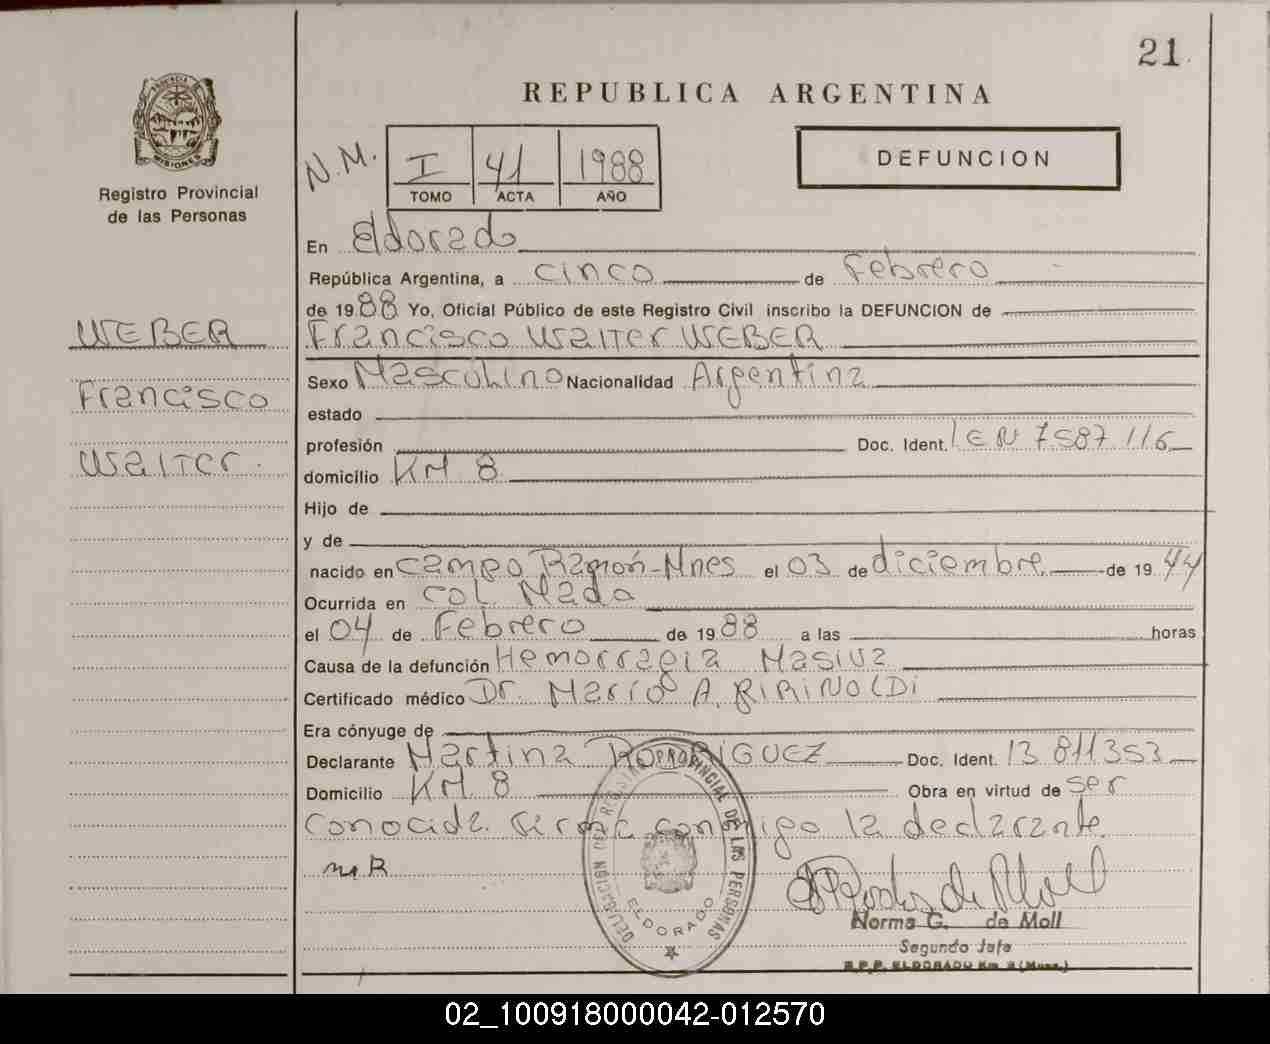 21
REPUBLICA ARGENTINA
PROVINCIA
MISIONES
Registro Provincial
de las Personas
N.M.
I 41 1988
TOMO ACTA AÑO
DEFUNCION
WEBER
Francisco
Walter.
En Eldorado
República Argentina, a cinco de Febrero
de 1988 Yo, Oficial Público de este Registro Civil inscribo la DEFUNCION de
Francisco Walter WEBER
Sexo Masculino Nacionalidad Argentina
estado
profesión Doc. Ident. 7587116
domicilio KM 8
Hijo de
y de
nacido en Campo Ramón-Mnes el 03 de diciembre de 1944
Ocurrida en Col Mado
el 04 de Febrero de 1988 a las horas
Causa de la defunción Hemorragia Masiva
Certificado médico Dr. Mario A.
Era cónyuge de
Declarante Martina RODRIGUEZ Doc. Ident. 13 811353
Domicilio KM 8 Obra en virtud de ser
conocida. Firma conmigo la declarante.
M R
DELEGACION DEL REGISTRO PROVINCIAL DE LAS PERSONAS
ELDORADO
Norma G. de Moll
Segundo Jefe
R.P.P. ELDORADO Km
02_100918000042-012570